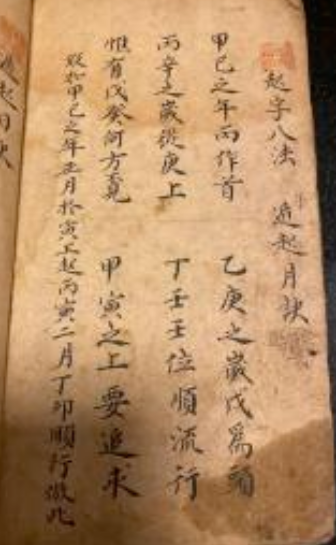 起字八法 遁起月訣
甲己之年丙作首 乙庚之歲戊爲頭
丙辛之歲從庚上 丁壬壬位順流行
惟有戊癸何方覓 甲寅之上要追求
假如甲己之年正月於寅上起丙寅二月丁卯順行倣此
起日訣